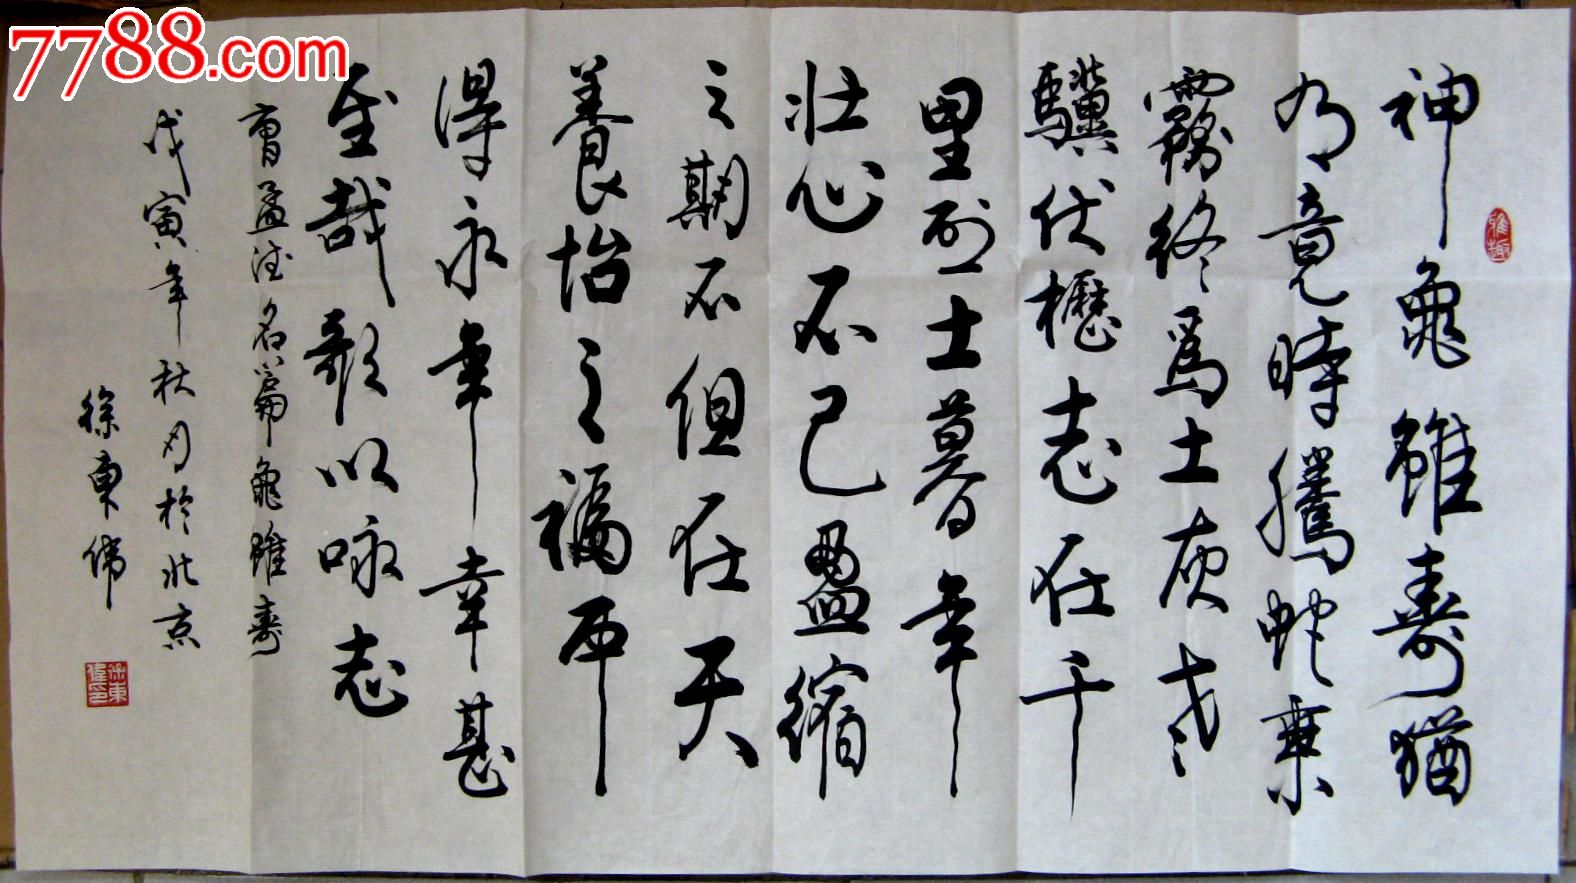 7788.com
雅趣
神龜雖壽猶
有竟時騰蛇乘
霧終爲土灰老
驥伏櫪志在千
里烈士暮年
壯心不已盈縮
之期不但在天
養怡之福可
得永年幸甚
至哉歌以咏志
曹孟德名篇龜雖壽
戊寅年秋月於北京
徐東偉
徐東偉印